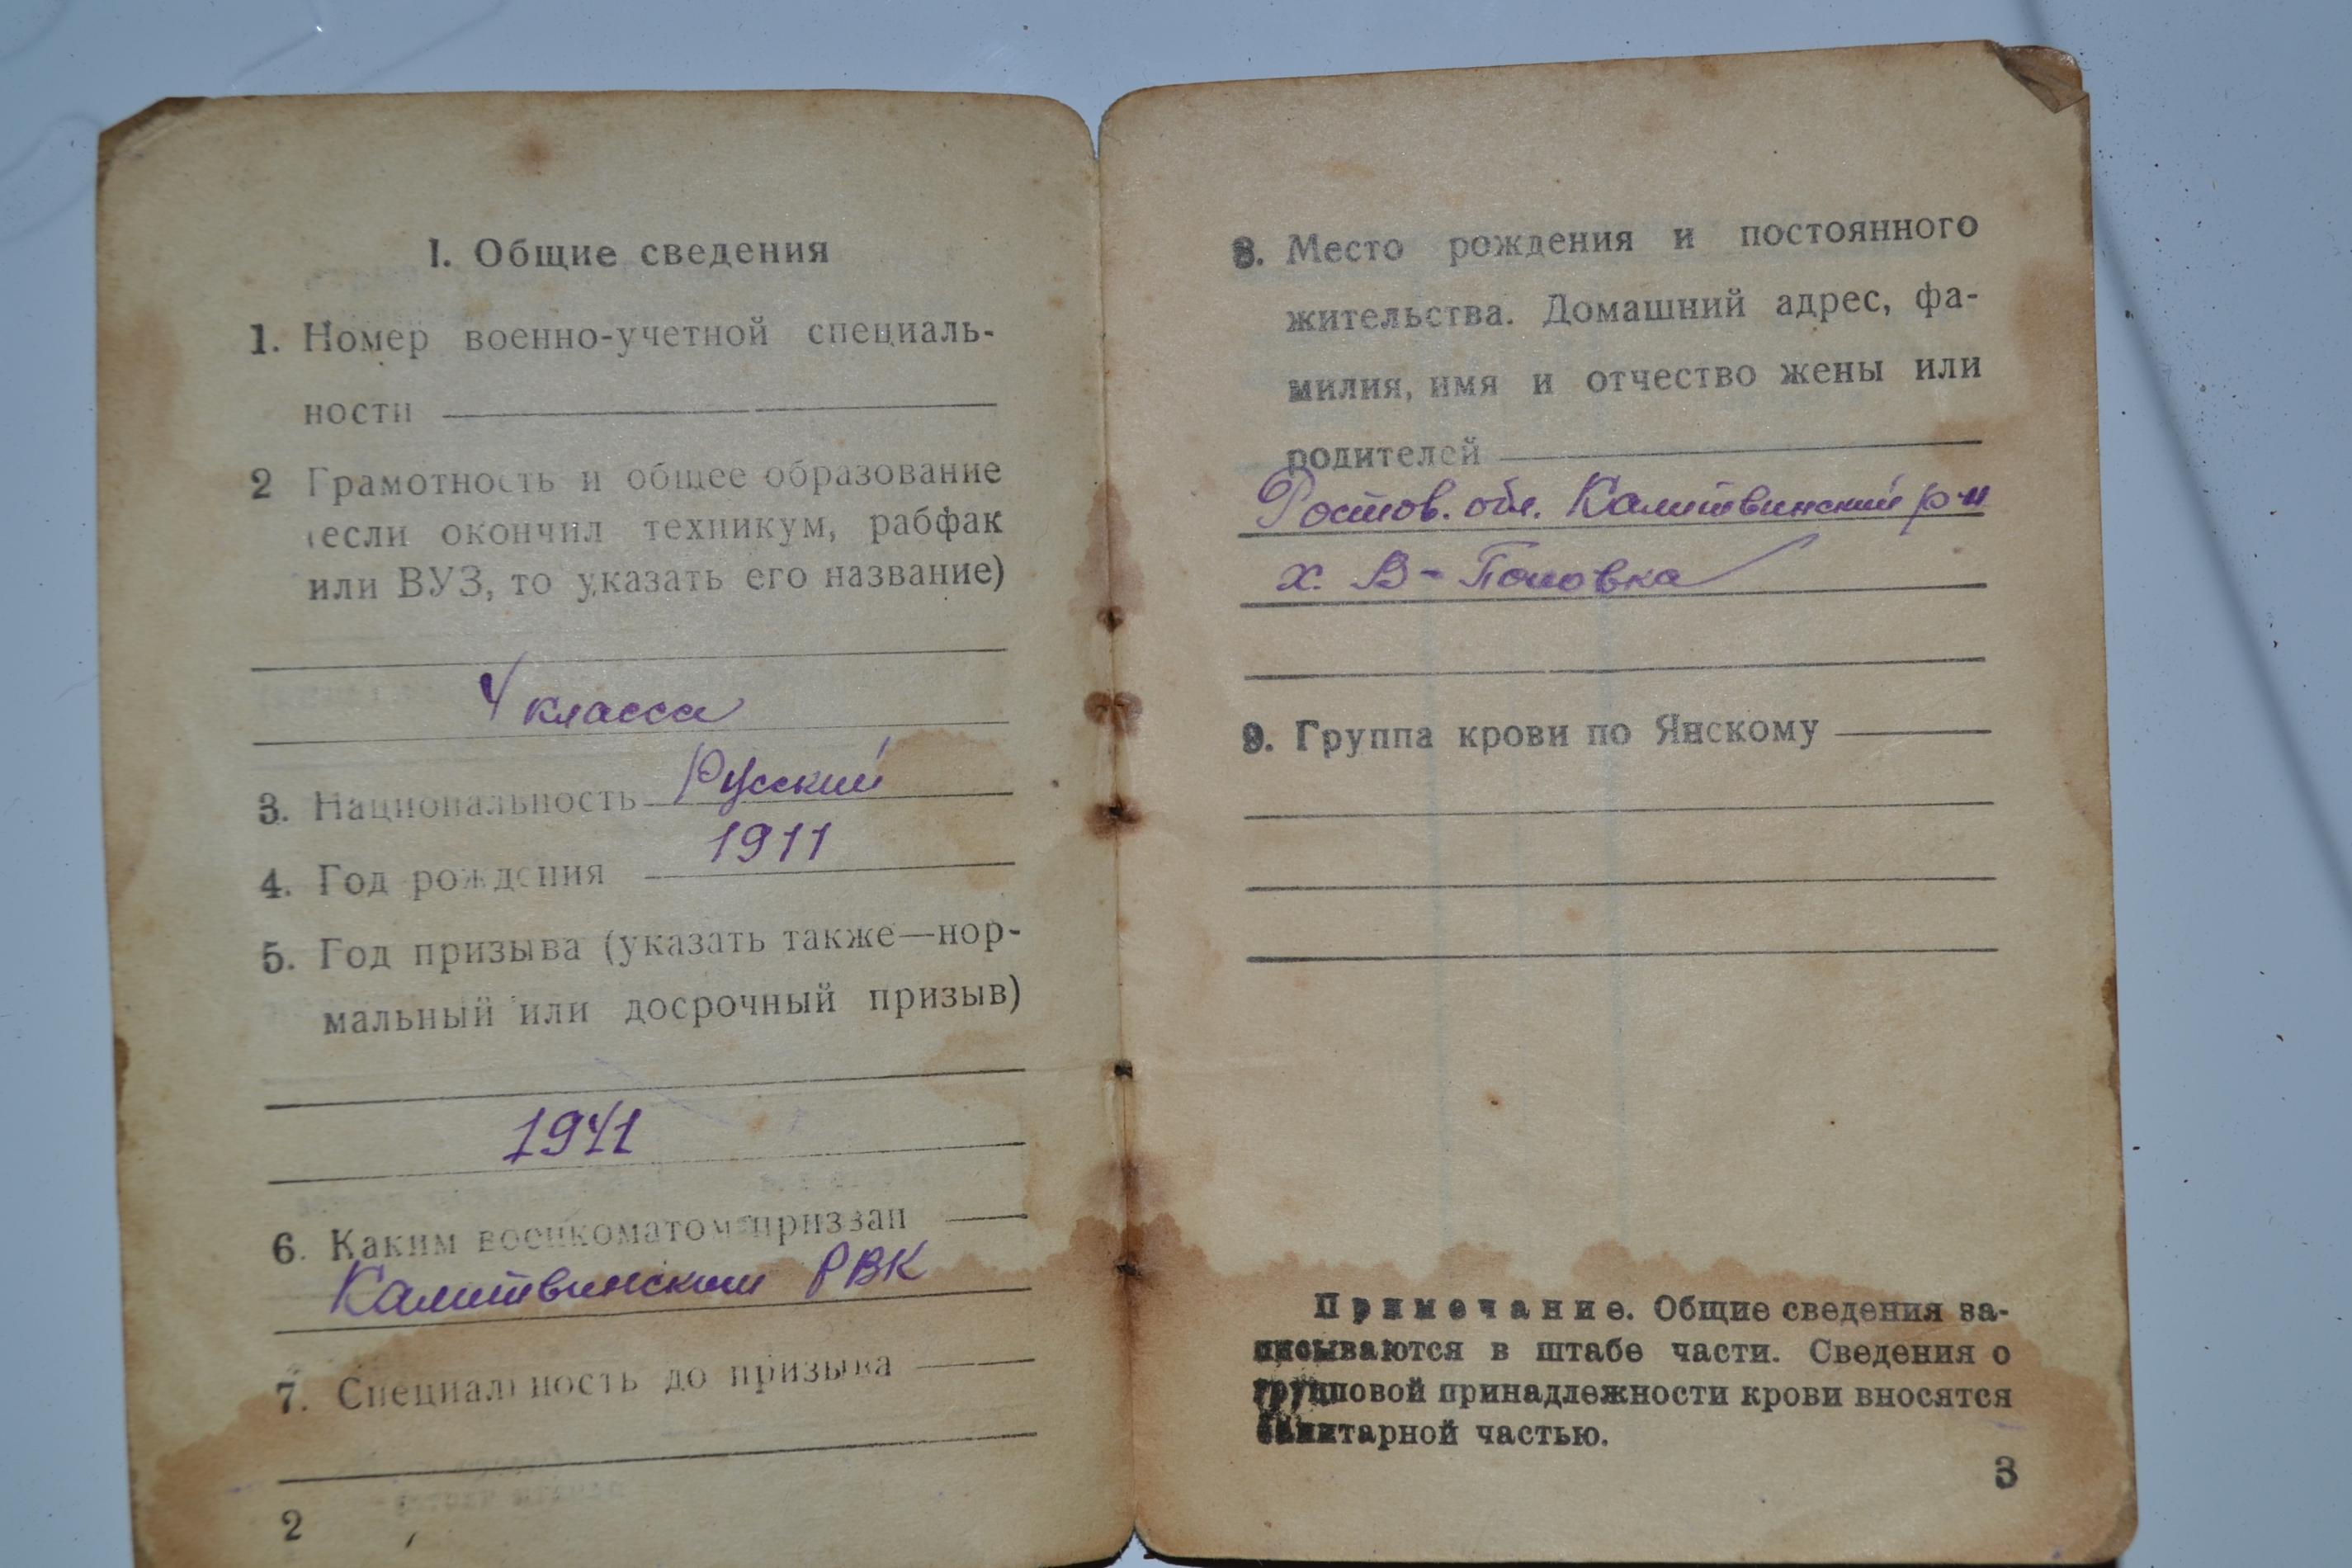 I. Общие сведения
1. Номер военно-учетной специаль-
ности
2 Грамотность и общее образование
(если окончил техникум, рабфак
или ВУЗ, то указать его название)
4 класса
3. Национальность Русский
4. Год рождения 1911
5. Год призыва (указать также—нор-
мальный или досрочный призыв)
1941
6. Каким военкоматом призван
Калитвинским РВК
7. Специальность до призыва
2
8. Место рождения и постоянного
жительства. Домашний адрес, фа-
милия, имя и отчество жены или
родителей
Ростов. обл. Калитвинский р-н
х. В-Поповка
9. Группа крови по Янскому
Примечание. Общие сведения за-
писываются в штабе части. Сведения о
групповой принадлежности крови вносятся
санитарной частью.
3